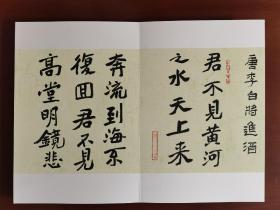 唐李白將進酒
君不見黄河
之水天上来
奔流到海不
復回君不見
高堂明鏡悲